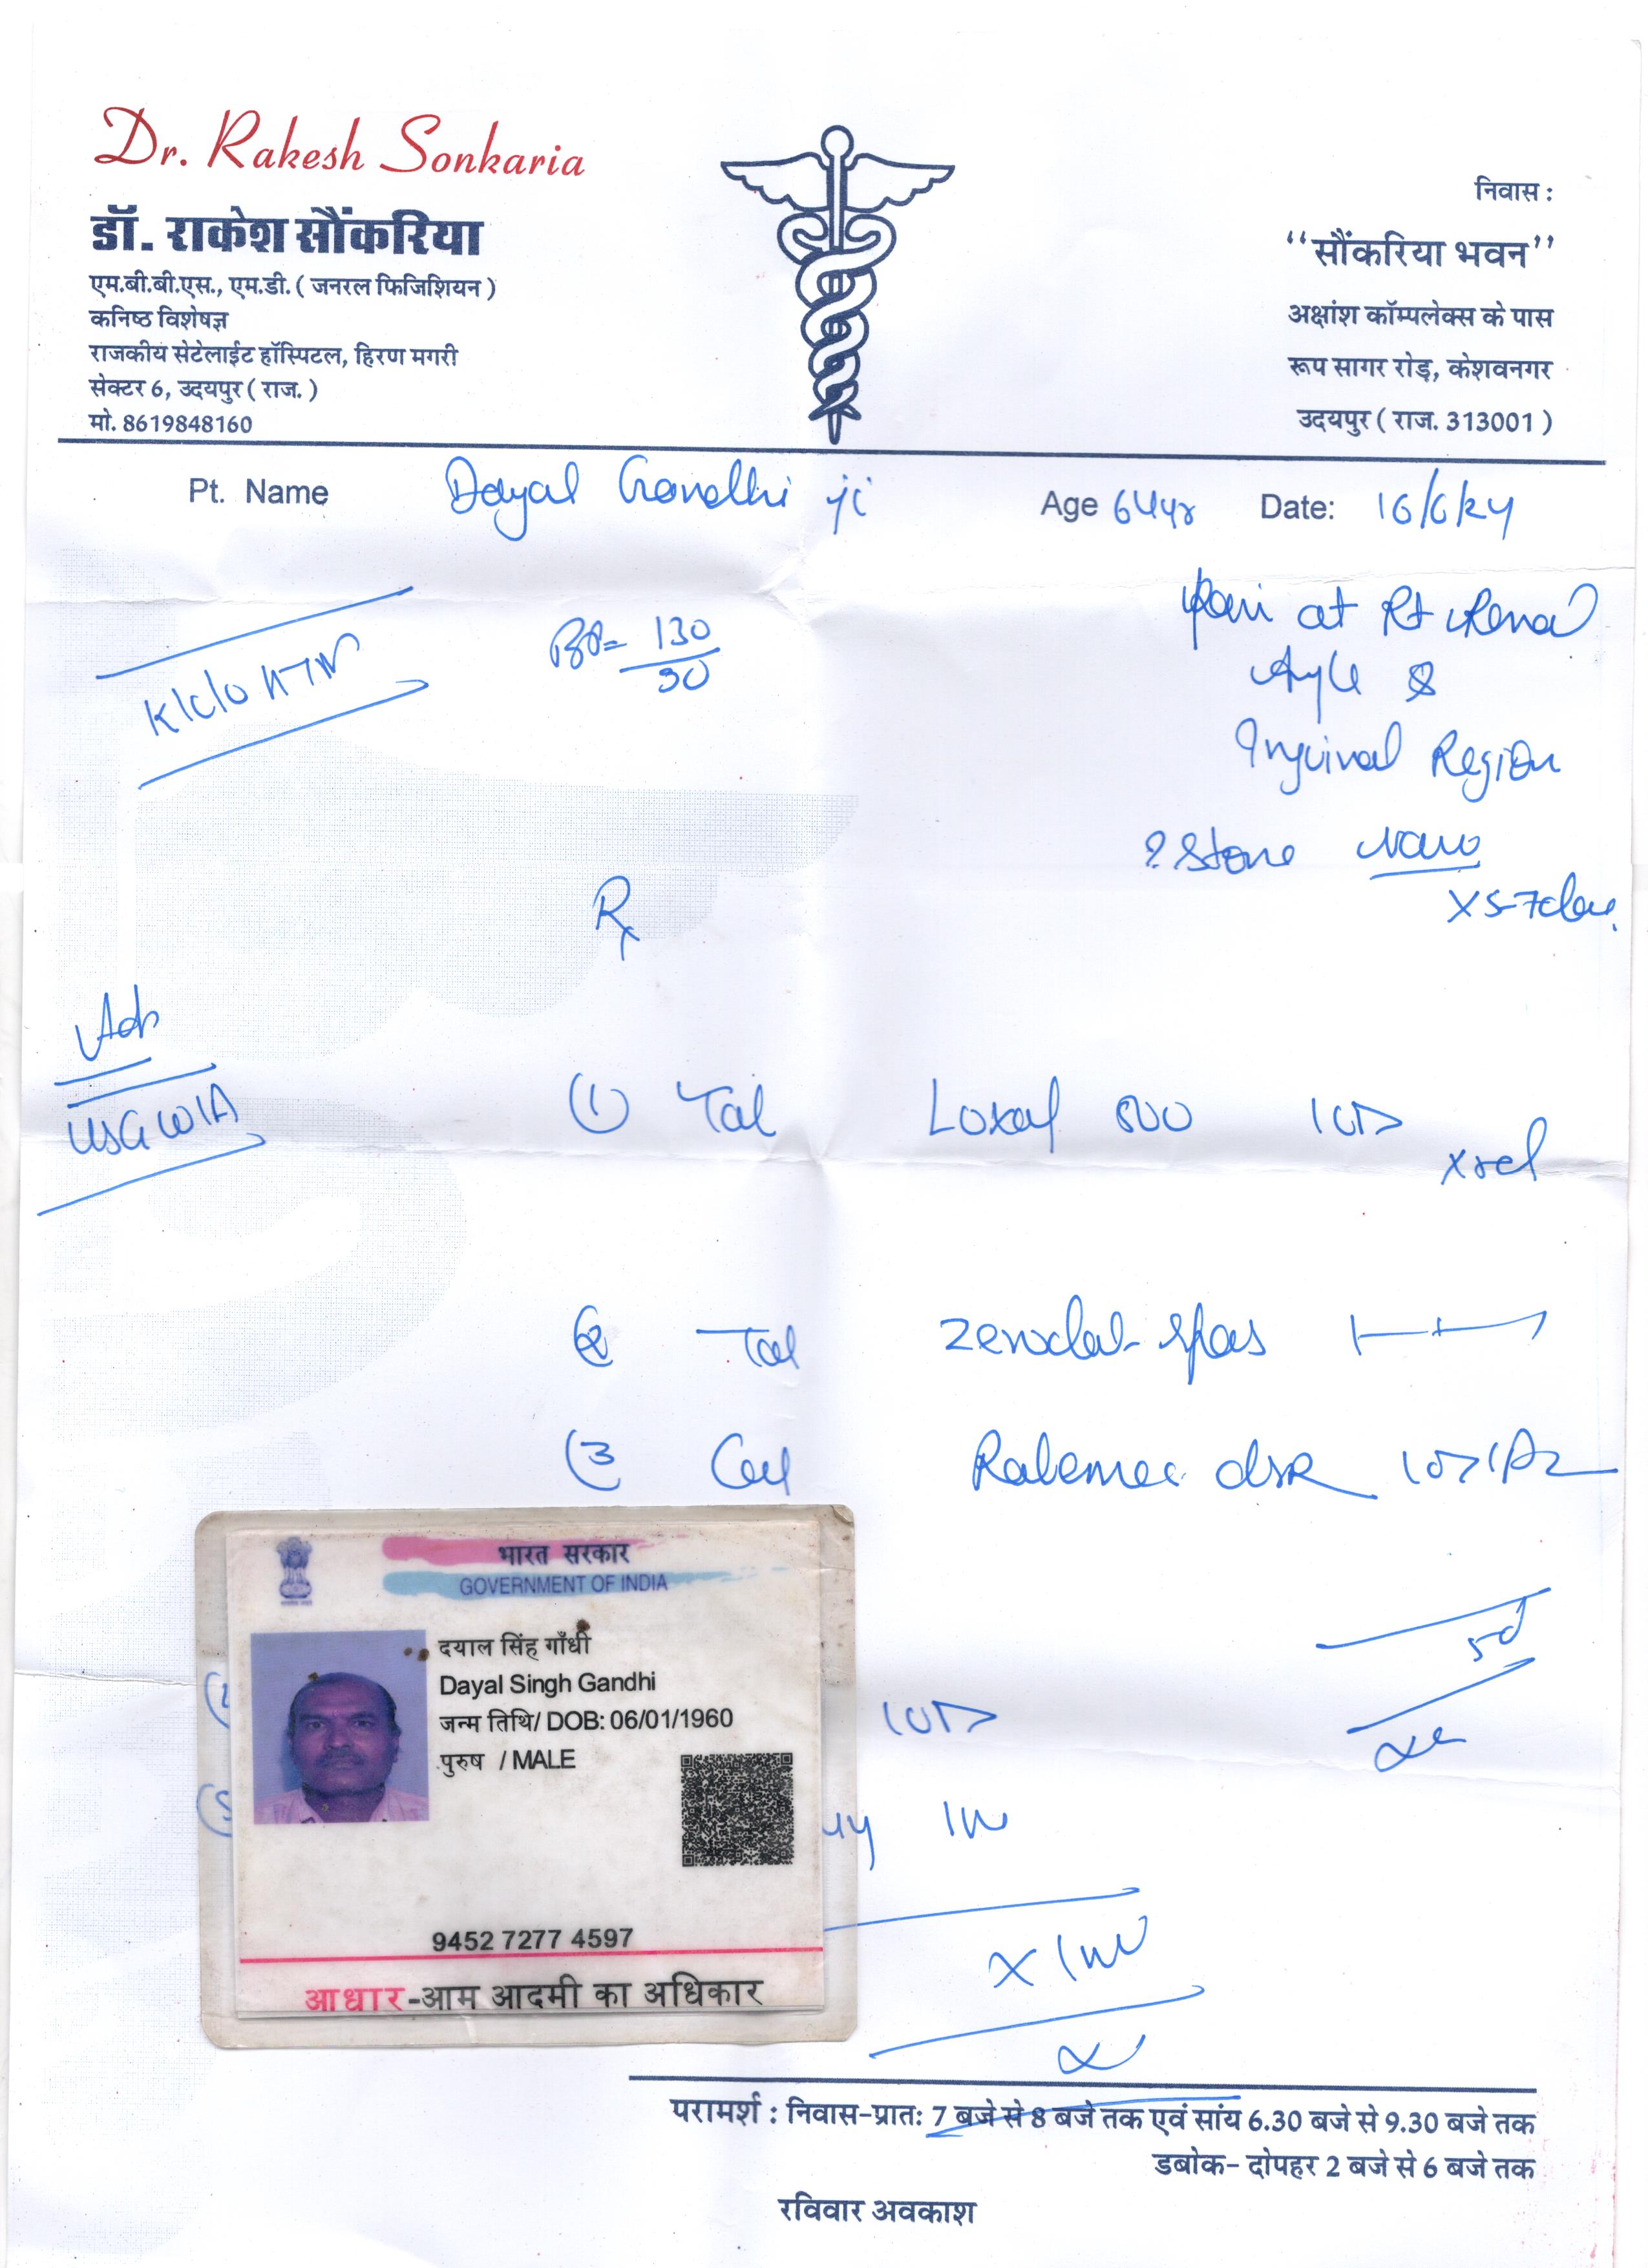 Dr. Rakesh Sonkaria
डॉ. राकेश सौंकरिया
एम.बी.बी.एस., एम.डी. ( जनरल फिजिशियन )
कनिष्ठ विशेषज्ञ
राजकीय सेटेलाईट हॉस्पिटल, हिरण मगरी
सेक्टर 6, उदयपुर ( राज. )
मो. 8619848160
निवास :
“सौंकरिया भवन”
अक्षांश कॉम्पलेक्स के पास
रूप सागर रोड़, केशवनगर
उदयपुर ( राज. 313001 )
Pt. Name Dayal Gandhi ji Age 64yr Date: 16/6/24
K/C/O HTN
BP= 130
at Rt Renal
Angle &
Inguinal Region
? Stone
X 5-7 days
Rx
Adv
USG W/A
(1) Tab
(2) Tab Zerodol-spas
(3) Cap dsr
भारत सरकार
GOVERNMENT OF INDIA
दयाल सिंह गाँधी
Dayal Singh Gandhi
जन्म तिथि/ DOB: 06/01/1960
पुरुष / MALE
9452 7277 4597
आधार-आम आदमी का अधिकार
5d
परामर्श : निवास-प्रातः 7 बजे से 8 बजे तक एवं सांय 6.30 बजे से 9.30 बजे तक
डबोक- दोपहर 2 बजे से 6 बजे तक
रविवार अवकाश